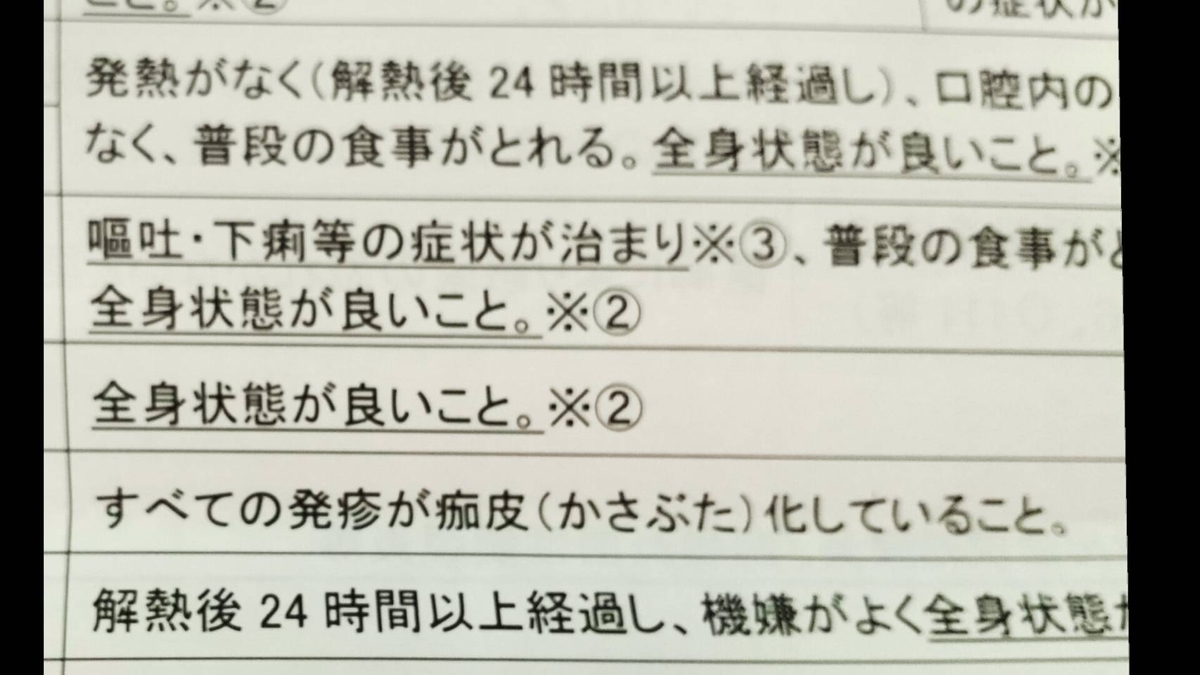 こと。※②
の症状が
発熱がなく(解熱後 24 時間以上経過し)、口腔内の
なく、普段の食事がとれる。全身状態が良いこと。※
嘔吐・下痢等の症状が治まり※③、普段の食事がと
全身状態が良いこと。※②
全身状態が良いこと。※②
すべての発疹が痂皮(かさぶた)化していること。
解熱後 24 時間以上経過し、機嫌がよく全身状態が